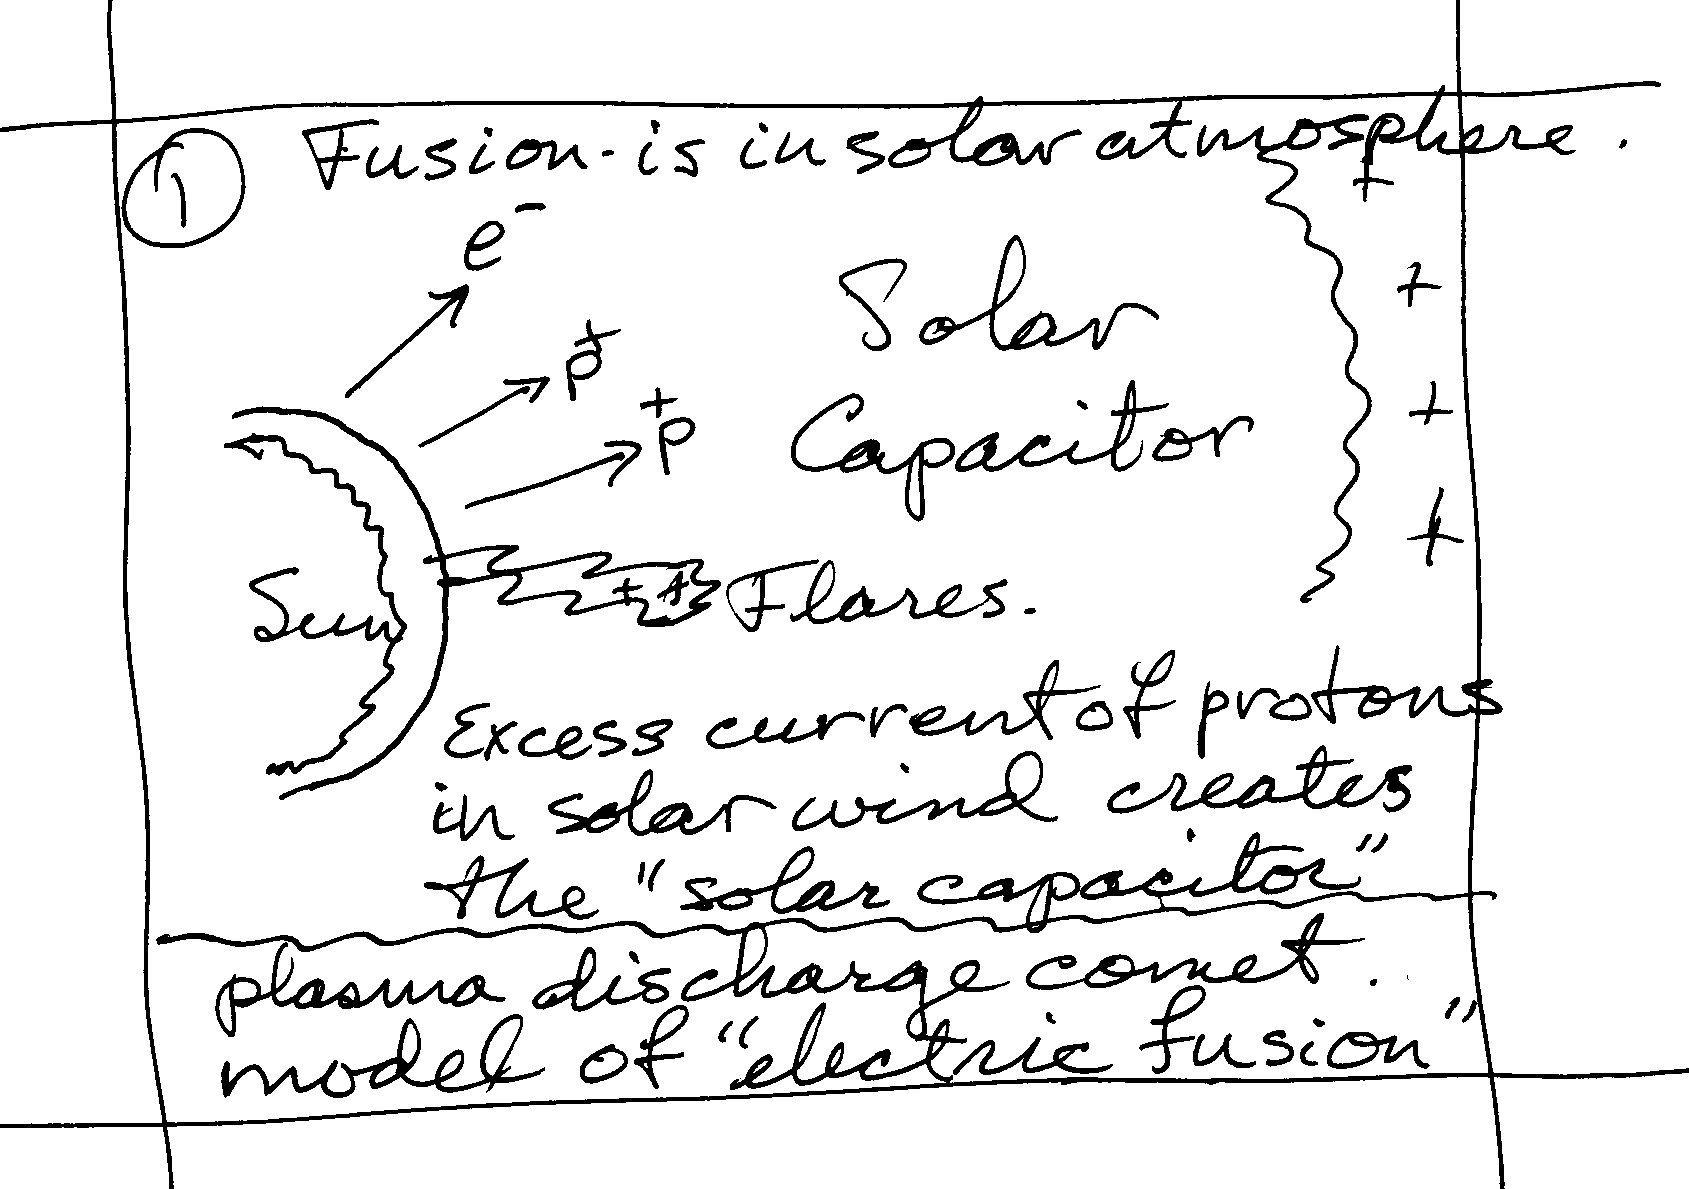 ① Fusion-is in solar atmosphere.
+
e⁻
Solar
+
p⁺
p⁺
Capacitor
+
+
Sun
+ +
Flares.
Excess current of protons
in solar wind creates
the "solar capacitor"
plasma discharge comet.
model of "electric fusion"